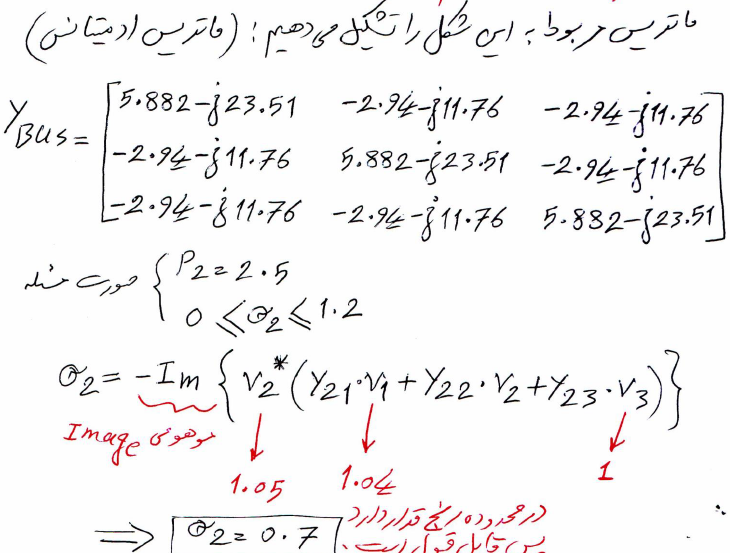 ماتریس مربوط به این شکل را تشکیل می‌دهیم: (ماتریس ادمیتانس)
Y_BUS = [5.882-j23.51 -2.94-j11.76 -2.94-j11.76
-2.94-j11.76 5.882-j23.51 -2.94-j11.76
-2.94-j11.76 -2.94-j11.76 5.882-j23.51]
صورت مسئله { P2 = 2.5
0 ≤ Q2 ≤ 1.2
Q2 = -Im { V2* (Y21·V1 + Y22·V2 + Y23·V3) }
Image موهومی
1.05 1.04 1
در محدوده رنج قرار دارد
⇒ Q2 = 0.7 پس قابل قبول است.